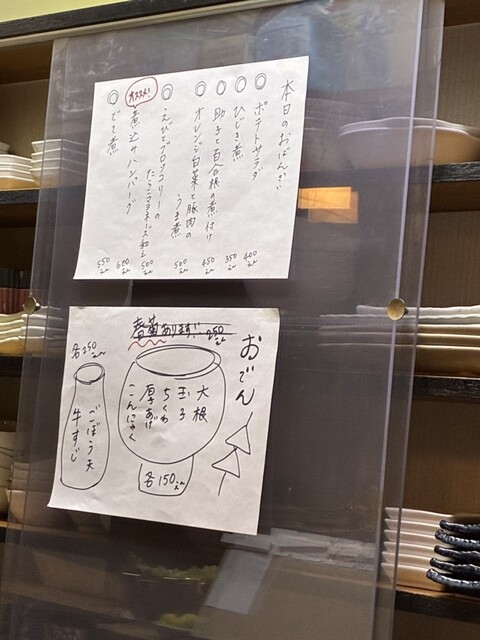 本日のおばんざい
○ポテトサラダ 400えん
○ひじき煮 350えん
○助子と百合根の煮付け 450えん
○オレンジ白菜と豚肉の
うま煮 500えん
○えびとブロッコリーの
たらこマヨネーズ和え 500えん
オススメ!
煮込みハンバーグ 600えん
○どて煮 550えん
おでん
春菊あります!! 250えん
大根
玉子
ちくわ
厚あげ
こんにゃく
各150えん
各250えん
ごぼう天
牛すじ